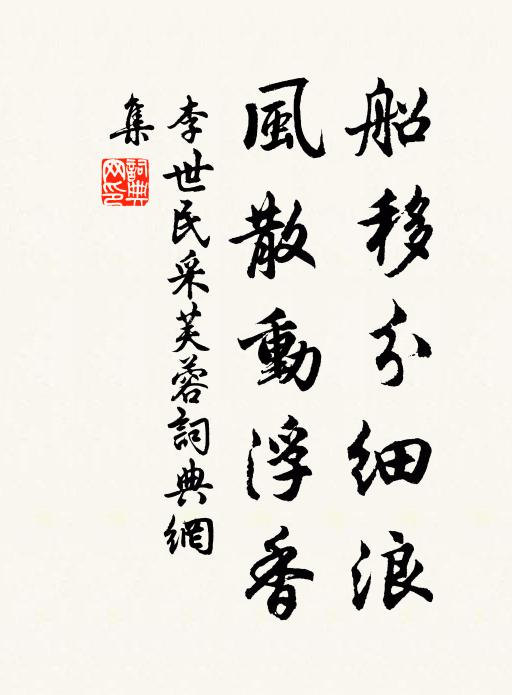 船移分細浪
風散動浮香
李世民采芙蓉詞典網
集
詞典网印